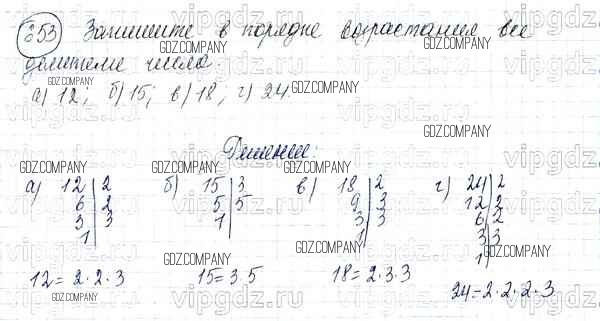 653 Запишите в порядке возрастания все
делители числа.
а) 12; б) 15; в) 18; г) 24.
Решение:
а) 12 | 2
6 | 2
3 | 3
1
б) 15 | 3
5 | 5
1
в) 18 | 2
9 | 3
3 | 3
1
г) 24 | 2
12 | 2
6 | 2
3 | 3
1
12 = 2·2·3
15 = 3·5
18 = 2·3·3
24 = 2·2·2·3
GDZ.COMPANY
vipgdz.ru